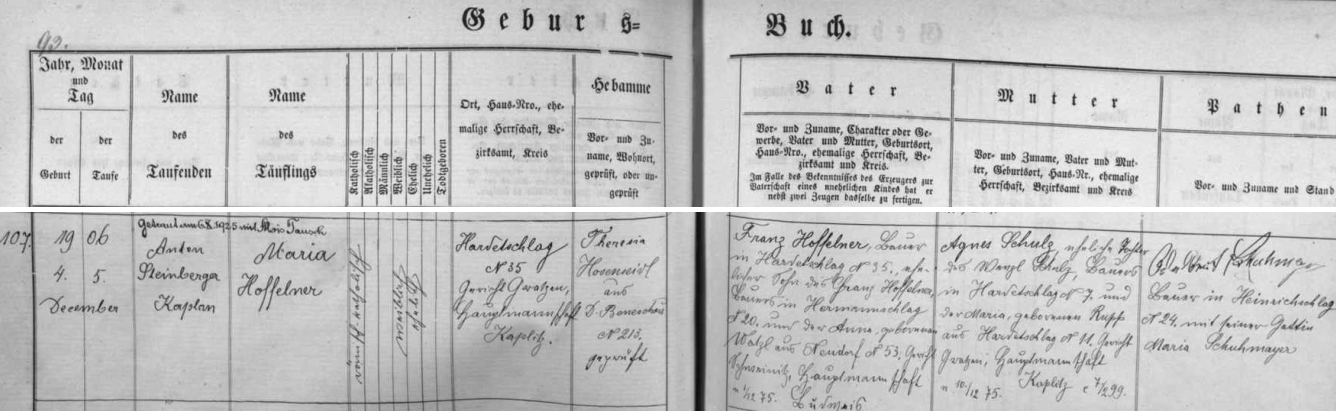 Geburts=
Buch.
93.
Jahr, Monat
und
Tag
der
Geburt
der
Taufe
Name
des
Taufenden
Name
des
Täuflings
Katholisch
Akatholisch
Männlich
Weiblich
Ehelich
Unehelich
Todtgeboren
Ort, Haus-Nro., ehe-
malige Herrschaft, Be-
zirksamt, Kreis
Hebamme
Vor- und Zu-
name, Wohnort,
geprüft, oder un-
geprüft
Vater
Vor- und Zuname, Charakter oder Ge-
werbe, Vater und Mutter, Geburtsort,
Haus-Nro., ehemalige Herrschaft, Be-
zirksamt und Kreis.
Im Falle des Bekenntnisses des Erzeugers zur
Vaterschaft eines unehelichen Kindes hat er
nebst zwei Zeugen dasselbe zu fertigen.
Mutter
Vor- und Zuname, Vater und Mut-
ter, Geburtsort, Haus-Nr., ehemalige
Herrschaft, Bezirksamt und Kreis
Pathen
Vor- und Zuname und Stand
107.
1906
4. 5.
December
Getraut am 6.X.1925 mit Alois
Anton
Steinberga
Kaplan
Maria
Hoffelner
Hardetschlag
N 35
Gericht Gratzen,
Hauptmannschaft
Kaplitz.
Theresia
Hosenseidl
aus
D. Beneschau
N 213.
geprüft
Franz Hoffelner, Bauer
in Hardetschlag N 35., ehe-
licher Sohn des Franz Hoffelner,
Bauers in Hermannschlag
N 20. und der Anna, geborenen
Watzl aus Neudorf N 53, Gericht
Schweinitz, Hauptmannschaft
n 1/12 75. Budweis
Agnes Schulz eheliche Tochter
des Wenzl Schulz, Bauers
in Hardetschlag N 7. und
der Maria, geborenen Rupp
aus Hardetschlag N 11. Gericht
Gratzen, Hauptmannschaft
n 10/12 75. Kaplitz c 7/2 99.
Schuhmayer
Bauer in Heinrichschlag
N 24. mit seiner Gattin
Maria Schuhmayer